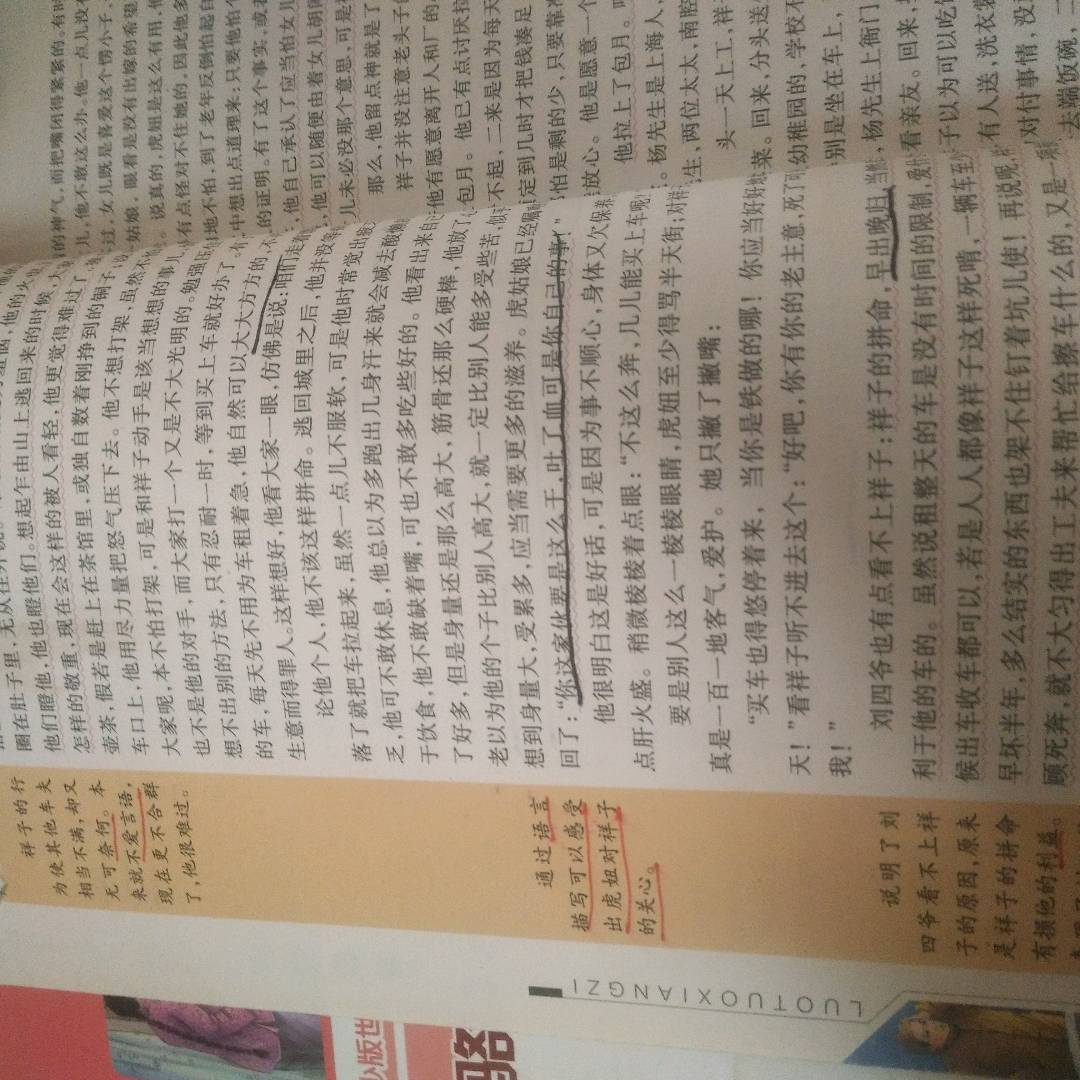 圈在肚子里，无从往外说。
他们瞪他，他也瞪他们。想起乍由山上逃回来的时候，
怎样的敬重，现在会这样的被人看轻，他更觉得难过了。
壶茶，假若是赶上在茶馆里，或独自数着刚挣到的铜子，
车口上，他用尽力量把怒气压下去。他不想打架，虽然
大家呢，本不怕打架，可是和祥子动手是该当想想的事儿
也不是他的对手，而大家打一个又是不大光明的。勉强
想不出别的方法，只有忍耐一时，等到买上车就好办了。
的车，每天先不用为车租着急，他自然可以大大方方的，
生意而得罪人。这样想好，他看大家一眼，仿佛是说：咱们走
论他个人，他不该这样拼命。逃回城里之后，他并没等
落了就把车拉起来，虽然一点儿不服软，可是他时常觉出疲
乏，他可不敢休息，他总以为多跑出几身汗来就会减去酸懒
于饮食，他不敢缺着嘴，可也不敢多吃些好的。他看出来自
了好多，但是身量还是那么高大，筋骨还那么硬棒，他放了
老以为他的个子比别人高大，就一定比别人能多受些苦，似
想到身量大，受累多，应当需要更多的滋养。虎姑娘已经嘱
回了：“你这家伙要是这么干，吐了血可是你自己的事！”
他很明白这是好话，可是因为事不顺心，身体又欠保养
点肝火盛。稍微棱棱着点眼：“不这么奔，几儿能买上车呢
要是别人这么一棱棱眼睛，虎妞至少得骂半天街；对祥
真是一百一地客气，爱护。她只撇了撇嘴：
“买车也得悠停着来，当你是铁做的哪！你应当好好
天！”看祥子听不进去这个：“好吧，你有你的老主意，死了可
我！”
刘四爷也有点看不上祥子：祥子的拼命，早出晚归，当
利于他的车的。虽然说租整天的车是没有时间的限制，爱
候出车收车都可以，若是人人都像祥子这样死啃，一辆车至少
早坏半年，多么结实的东西也架不住钉着坑儿使！再说呢，
顾死奔，就不大匀得出工夫来帮忙给擦车什么的，又是一
祥子的行
为使其他车夫
相当不满，却又
无可奈何。本
来就不爱言语，
现在更不合群
了，他很难过。
通过语言
描写可以感受
出虎妞对祥子
的关心。
说明了刘
四爷看不上祥
子的原因，原来
是祥子的拼命
有损他的利益。
LUOTUOXIANGZI
的神气，而把嘴闭得紧紧的。有时
儿，他不敢这么办。他一点儿没有
过，女儿既是喜爱这个愣小子，
姑娘，眼看是没有出嫁的希望
。说真的，虎妞是这么有用，他
有点怪对不住她的，因此他多
地不怕，到了老年反倒怕起自
中想出点道理来：只要他怕个
的证明。有了这个事实，或者
，他自己承认了应当怕女儿
，他可以随便由着女儿胡闹
儿未必没那个意思，可是
那么，他留点神就是了
祥子并没注意老头子的
他有愿意离开人和厂的
包月。他已有点讨厌拉
不起，二来是因为每天
定到几时才把钱凑足
怕是剩的少，只要靠准
放心。他是愿意一个
他拉上了包月。
。杨先生是上海人，
生，两位太太，南腔
头一天上工，祥子
菜。回来，分头送
幼稚园的、学校不
别是坐在车上，
，杨先生上衙门
看亲友。回来，
子以为可以吃
有人送，洗衣裳
对付事情，没
去端饭碗，
少版
略